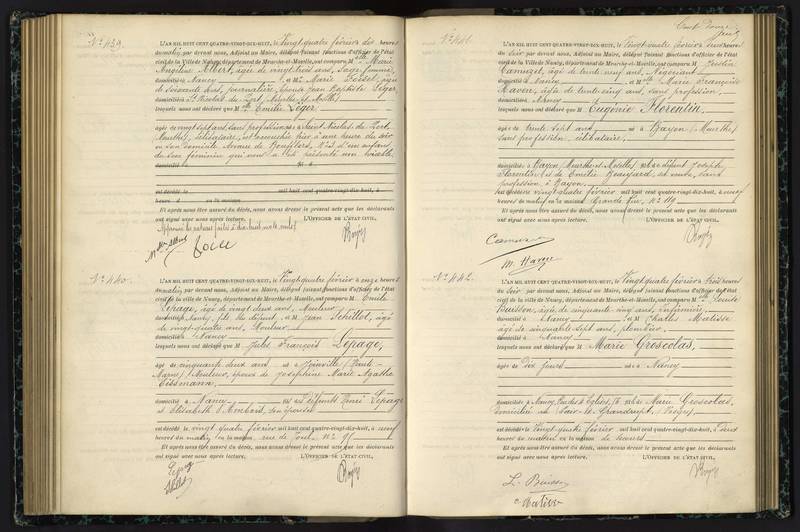 N° 439.
L'AN MIL HUIT CENT QUATRE-VINGT-DIX-HUIT, le Vingt quatre février dix heures
du matin par devant nous, Adjoint au Maire, délégué faisant fonctions d'officier de l'état
civil de la Ville de Nancy, département de Meurthe-et-Moselle, ont comparu M lle Marie
Albert, âgée de vingt trois ans, Sage femme,
domiciliée à Nancy et M Marie
de soixante ans, journalière, épouse Jean Baptiste Léger,
domiciliée à St Nicolas du Port, (Meurthe et Moselle)
lesquels nous ont déclaré que M lle Emilie Léger
âgée de vingt sept ans, sans profession née à Saint Nicolas du Port,
(Meurthe), célibataire, est accouchée hier à une heure du soir
en son domicile Avenue de Boufflers, N° d'un enfant
du sexe féminin qui nous a été présenté non viable.
domicilié à
est décédé le mil huit cent quatre-vingt-dix-huit, à
heures d en la maison
Et après nous être assuré du décès, nous avons dressé le présent acte que les déclarants
ont signé avec nous après lecture. L'OFFICIER DE L'ÉTAT CIVIL,
N° 440.
L'AN MIL HUIT CENT QUATRE-VINGT-DIX-HUIT, le Vingt quatre février à onze heures
du matin, par devant nous, Adjoint au Maire, délégué faisant fonctions d'officier de l'état
civil de la ville de Nancy, département de Meurthe-et-Moselle, ont comparu M Emile
Lepage, âgé de vingt deux ans, Mouleur
domicilié à Nancy, fils du défunt et M Jean Schillot, âgé
de vingt quatre ans, Mouleur
domicilié à Nancy
lesquels nous ont déclaré que M Jules François Lepage,
âgé de cinquante deux ans né à Joinville (Haute-
Marne) Mouleur, époux de Joséphine Marie Agathe
Eissmann
domicilié à Nancy, fils de défunts Henri Lepage
et Elisabeth son épouse
est décédé le vingt quatre février mil huit cent quatre-vingt-dix-huit, à neuf
heures du matin en la maison rue de Toul, N°
Et après nous être assuré du décès, nous avons dressé le présent acte que les déclarants
ont signé avec nous après lecture. L'OFFICIER DE L'ÉTAT CIVIL,
Lepage
Cent douze
N° 441.
L'AN MIL HUIT CENT QUATRE-VINGT-DIX-HUIT, le Vingt quatre février heures
du soir par devant nous, Adjoint au Maire, délégué faisant fonctions d'officier de l'état
civil de la Ville de Nancy, département de Meurthe-et-Moselle, ont comparu M Justin
âgé de trente neuf ans, Négociant
domicilié à Nancy et M Marie Françoise
âgée de trente cinq ans, sans profession,
domiciliée à Nancy
lesquels nous ont déclaré que M Eugénie Florentin,
âgée de trente sept ans née à Bayon (Meurthe)
sans profession, célibataire,
domiciliée à Bayon (Meurthe et Moselle) fille de défunt Joseph
Florentin et de Emélie sa veuve, sans
profession à Bayon,
est décédée vingt quatre février mil huit cent quatre-vingt-dix-huit, à onze
heures du matin en la maison Grande rue, N°
Et après nous être assuré du décès, nous avons dressé le présent acte que les déclarants
ont signé avec nous après lecture. L'OFFICIER DE L'ÉTAT CIVIL,
N° 442.
L'AN MIL HUIT CENT QUATRE-VINGT-DIX-HUIT, le Vingt quatre février à trois heures
du soir par devant nous, Adjoint au Maire, délégué faisant fonctions d'officier de l'état
civil de la ville de Nancy, département de Meurthe-et-Moselle, ont comparu M lle Louise
Buisson, âgée de cinquante cinq ans, infirmière,
domiciliée à Nancy et M Charles Matisse
âgé de cinquante sept ans, plombier
domicilié à Nancy
lesquels nous ont déclaré que M Marie Groscolas,
âgée de Dix jours née à Nancy
domiciliée à Nancy, fille de Marie Groscolas,
domiciliée à (Vosges)
est décédée le Vingt quatre février mil huit cent quatre-vingt-dix-huit, à deux
heures du matin en la maison de secours
Et après nous être assuré du décès, nous avons dressé le présent acte que les déclarants
ont signé avec nous après lecture. L'OFFICIER DE L'ÉTAT CIVIL,
L. Buisson
C. Matisse